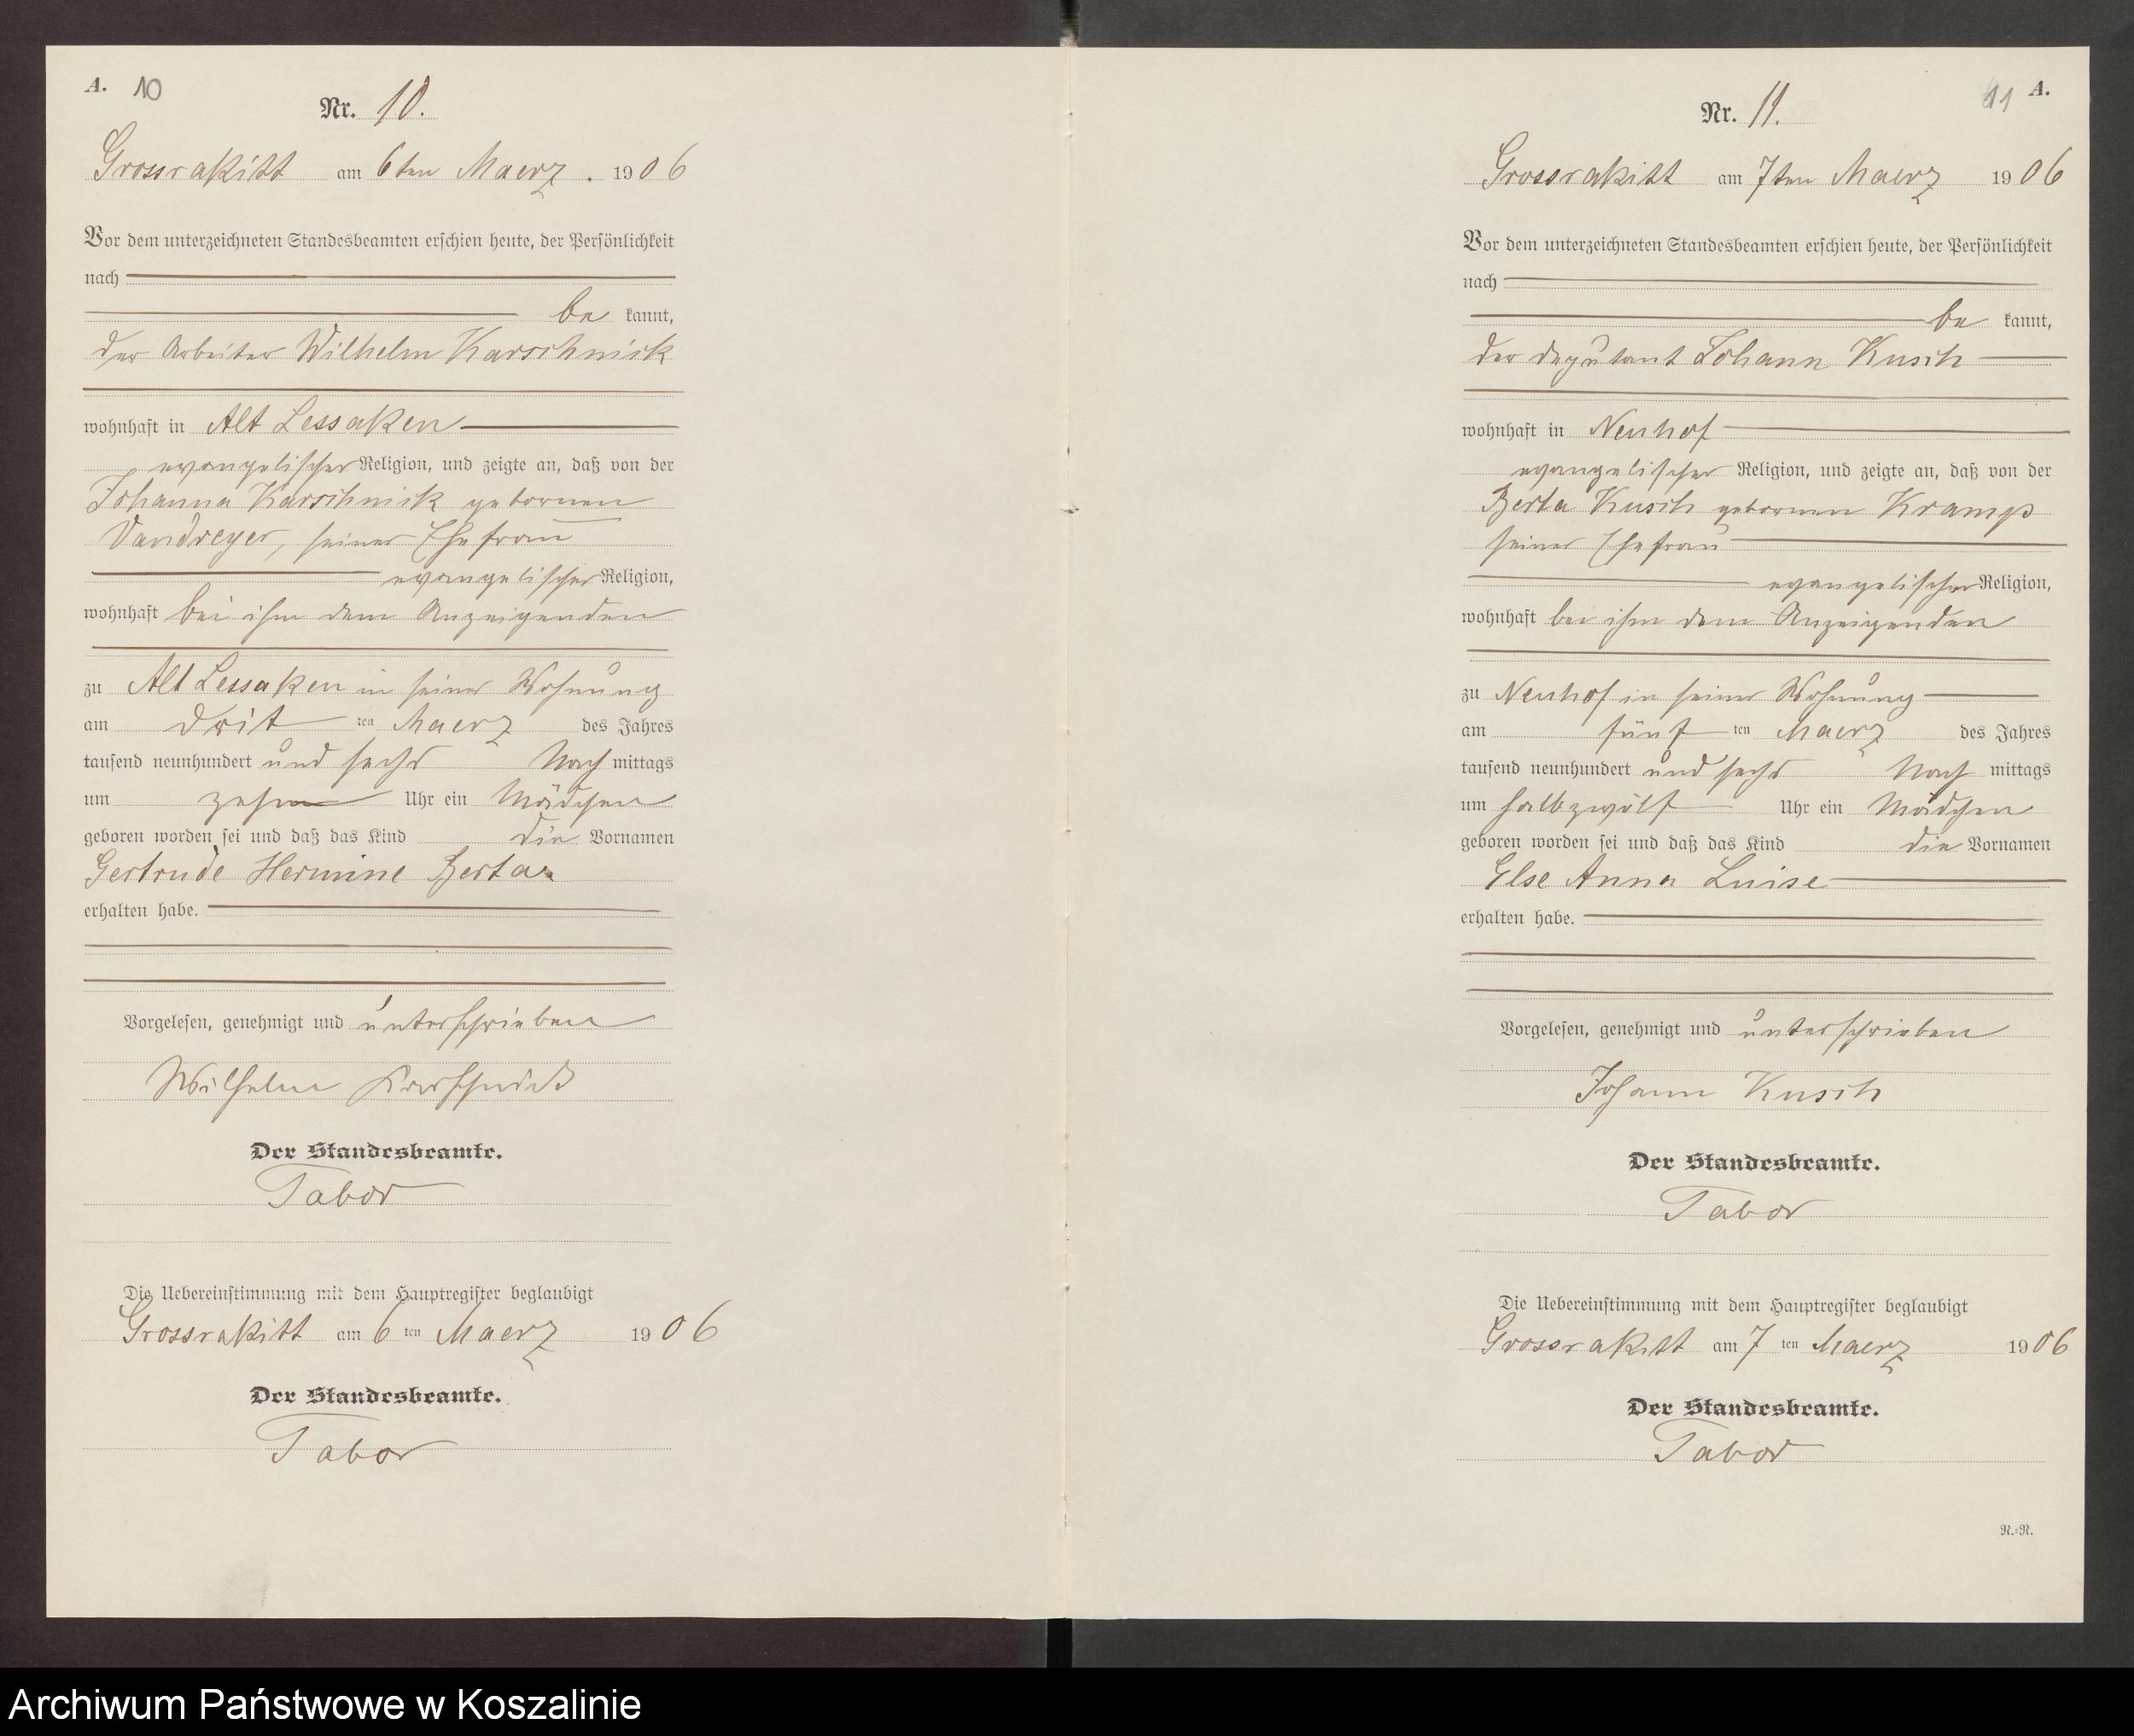 A. 10
Nr. 10.
Grossrakitt am 6ten Maerz . 1906
Vor dem unterzeichneten Standesbeamten erschien heute, der Persönlichkeit
nach
be kannt,
der Arbeiter Wilhelm Karschnick
wohnhaft in Alt Lessaken
evangelischer Religion, und zeigte an, daß von der
Johanna Karschnick gebornen
Vandreyer, seiner Ehefrau
evangelischer Religion,
wohnhaft bei ihm dem Anzeigenden
zu Alt Lessaken in seiner Wohnung
am drit ten Maerz des Jahres
tausend neunhundert und sechs Nach mittags
um zehn Uhr ein Mädchen
geboren worden sei und daß das Kind die Vornamen
Gertrude Hermine Berta
erhalten habe.
Vorgelesen, genehmigt und unterschrieben
Wilhelm Karschnick
Der Standesbeamte.
Tabor
Die Uebereinstimmung mit dem Hauptregister beglaubigt
Grossrakitt am 6 ten Maerz 1906
Der Standesbeamte.
Tabor
11 A.
Nr. 11.
Grossrakitt am 7ten Maerz 1906
Vor dem unterzeichneten Standesbeamten erschien heute, der Persönlichkeit
nach
be kannt,
der Deputant Johann Kusch
wohnhaft in Neuhof
evangelischer Religion, und zeigte an, daß von der
Berta Kusch gebornen Kramp
seiner Ehefrau
evangelischer Religion,
wohnhaft bei ihm dem Anzeigenden
zu Neuhof in seiner Wohnung
am fünf ten Maerz des Jahres
tausend neunhundert und sechs Nach mittags
um halbzwölf Uhr ein Mädchen
geboren worden sei und daß das Kind die Vornamen
Else Anna Luise
erhalten habe.
Vorgelesen, genehmigt und unterschrieben
Johann Kusch
Der Standesbeamte.
Tabor
Die Uebereinstimmung mit dem Hauptregister beglaubigt
Grossrakitt am 7 ten Maerz 1906
Der Standesbeamte.
Tabor
N.-R.
Archiwum Państwowe w Koszalinie